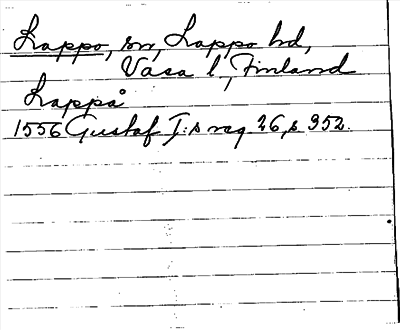 Lappo, sn, Lappo hd,
Vasa l, Finland
Lappå
1556 Gustaf I:s reg. 26, s 952.